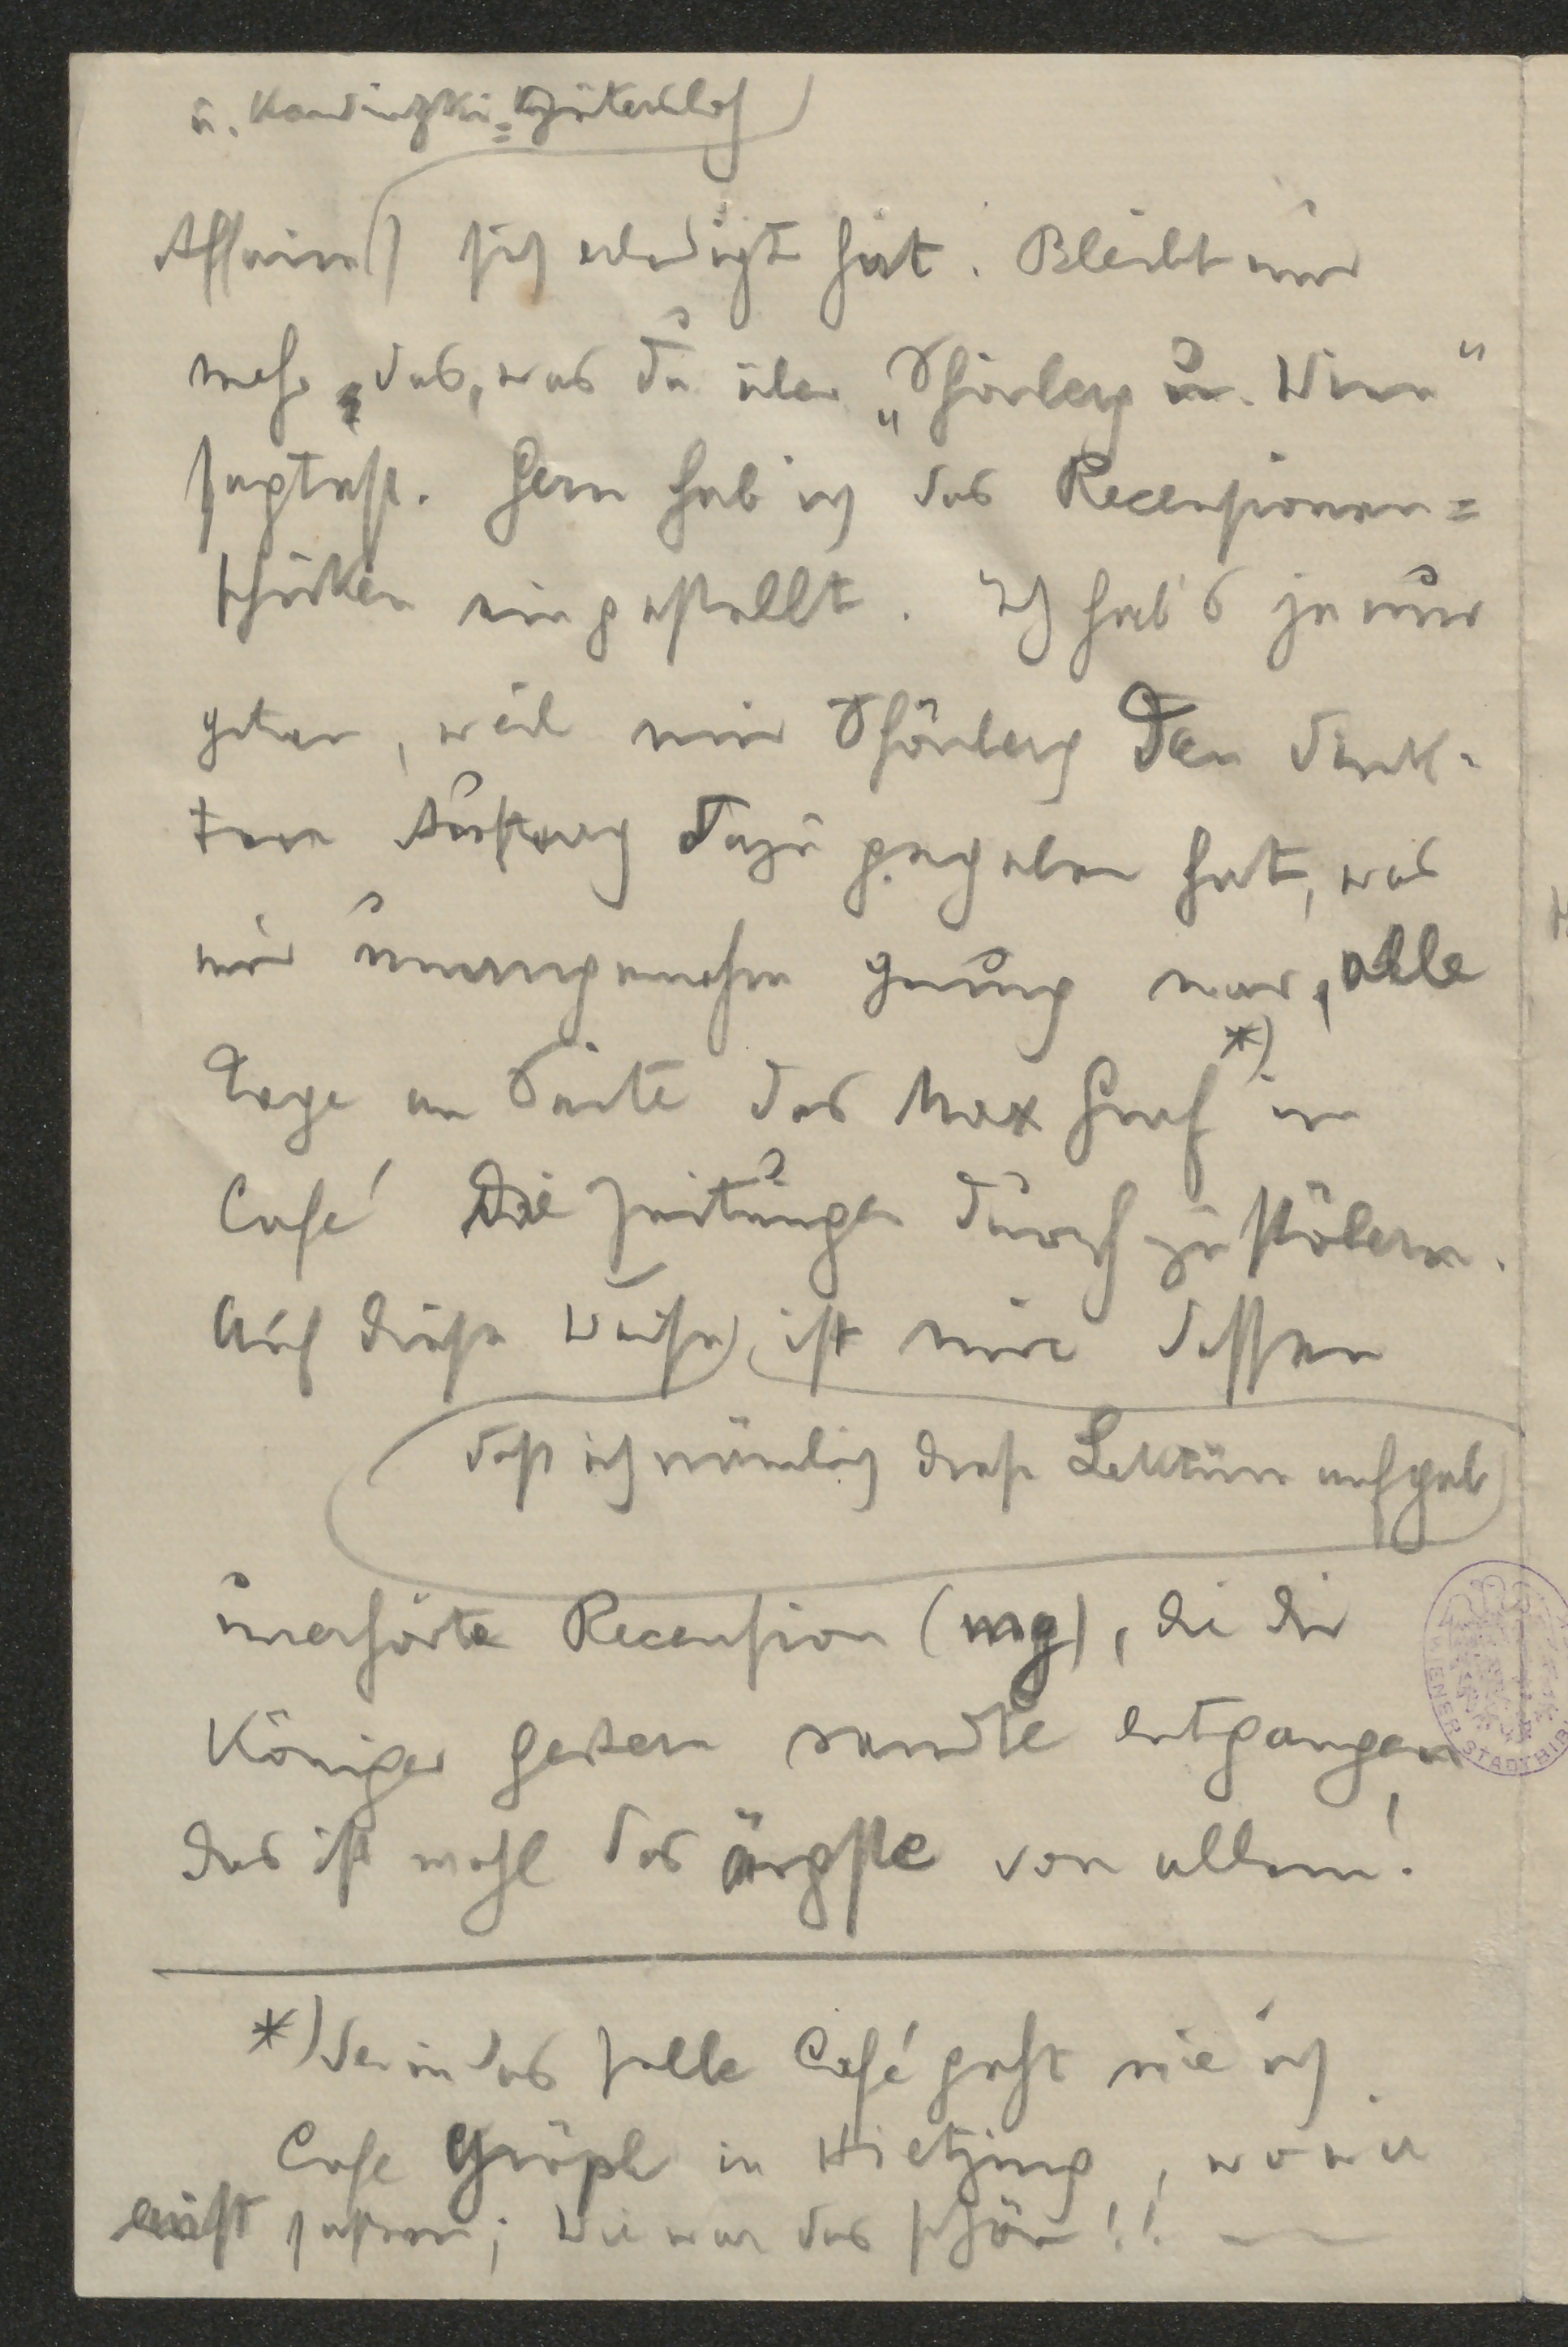 u. Kandinzki-Gütersloh
Affaire) sich erledigt hat. Bleibt nur
mehr das, was du über „Schönberg u. Wien“
sagtest. Gern hab ich das Recensionen=
schicken eingestellt. Ich hab's ja nur
getan, weil mir Schönberg den direk-
ten Auftrag dazu gegeben hat, was
mir unangenehm genug war, alle
Tage an Seite des Max Graf *) im
Café die Zeitungen durchzustöbern.
Auf diese Weise ist mir dessen
dass ich nämlich diese Lektüre aufgab
unerhörte Recension (mg), die dir
Königer gestern sandte entgangen,
das ist wohl das ärgste von allem!
*) der in das selbe Café geht wie ich.
Cafe Gröpl in Hietzing, wo wir
einst saßen; wie war das schön!! —
WIENER STADTBIB